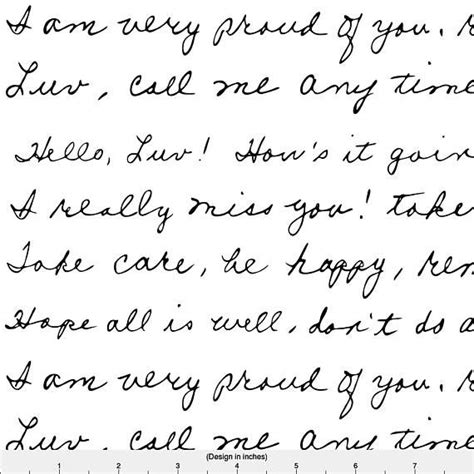 I am very proud of you.
Luv, call me any time
Hello, Luv! How's it goin
I really miss you! take
Take care, be happy, rem
Hope all is well, don't do a
I am very proud of you.
Luv, call me any time
(Design in inches)
1 2 3 4 5 6 7